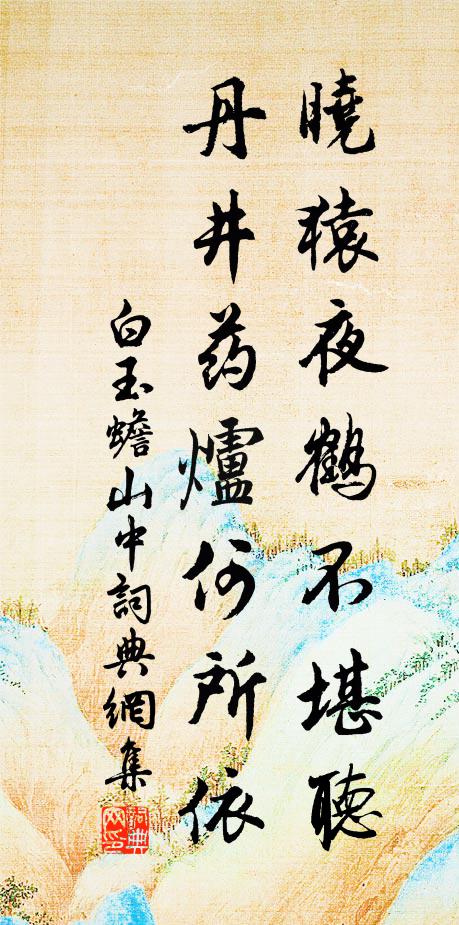 曉猿夜鶴不堪聽
丹井药爐何所依
白玉蟾山中詞典網集
詞典
网印